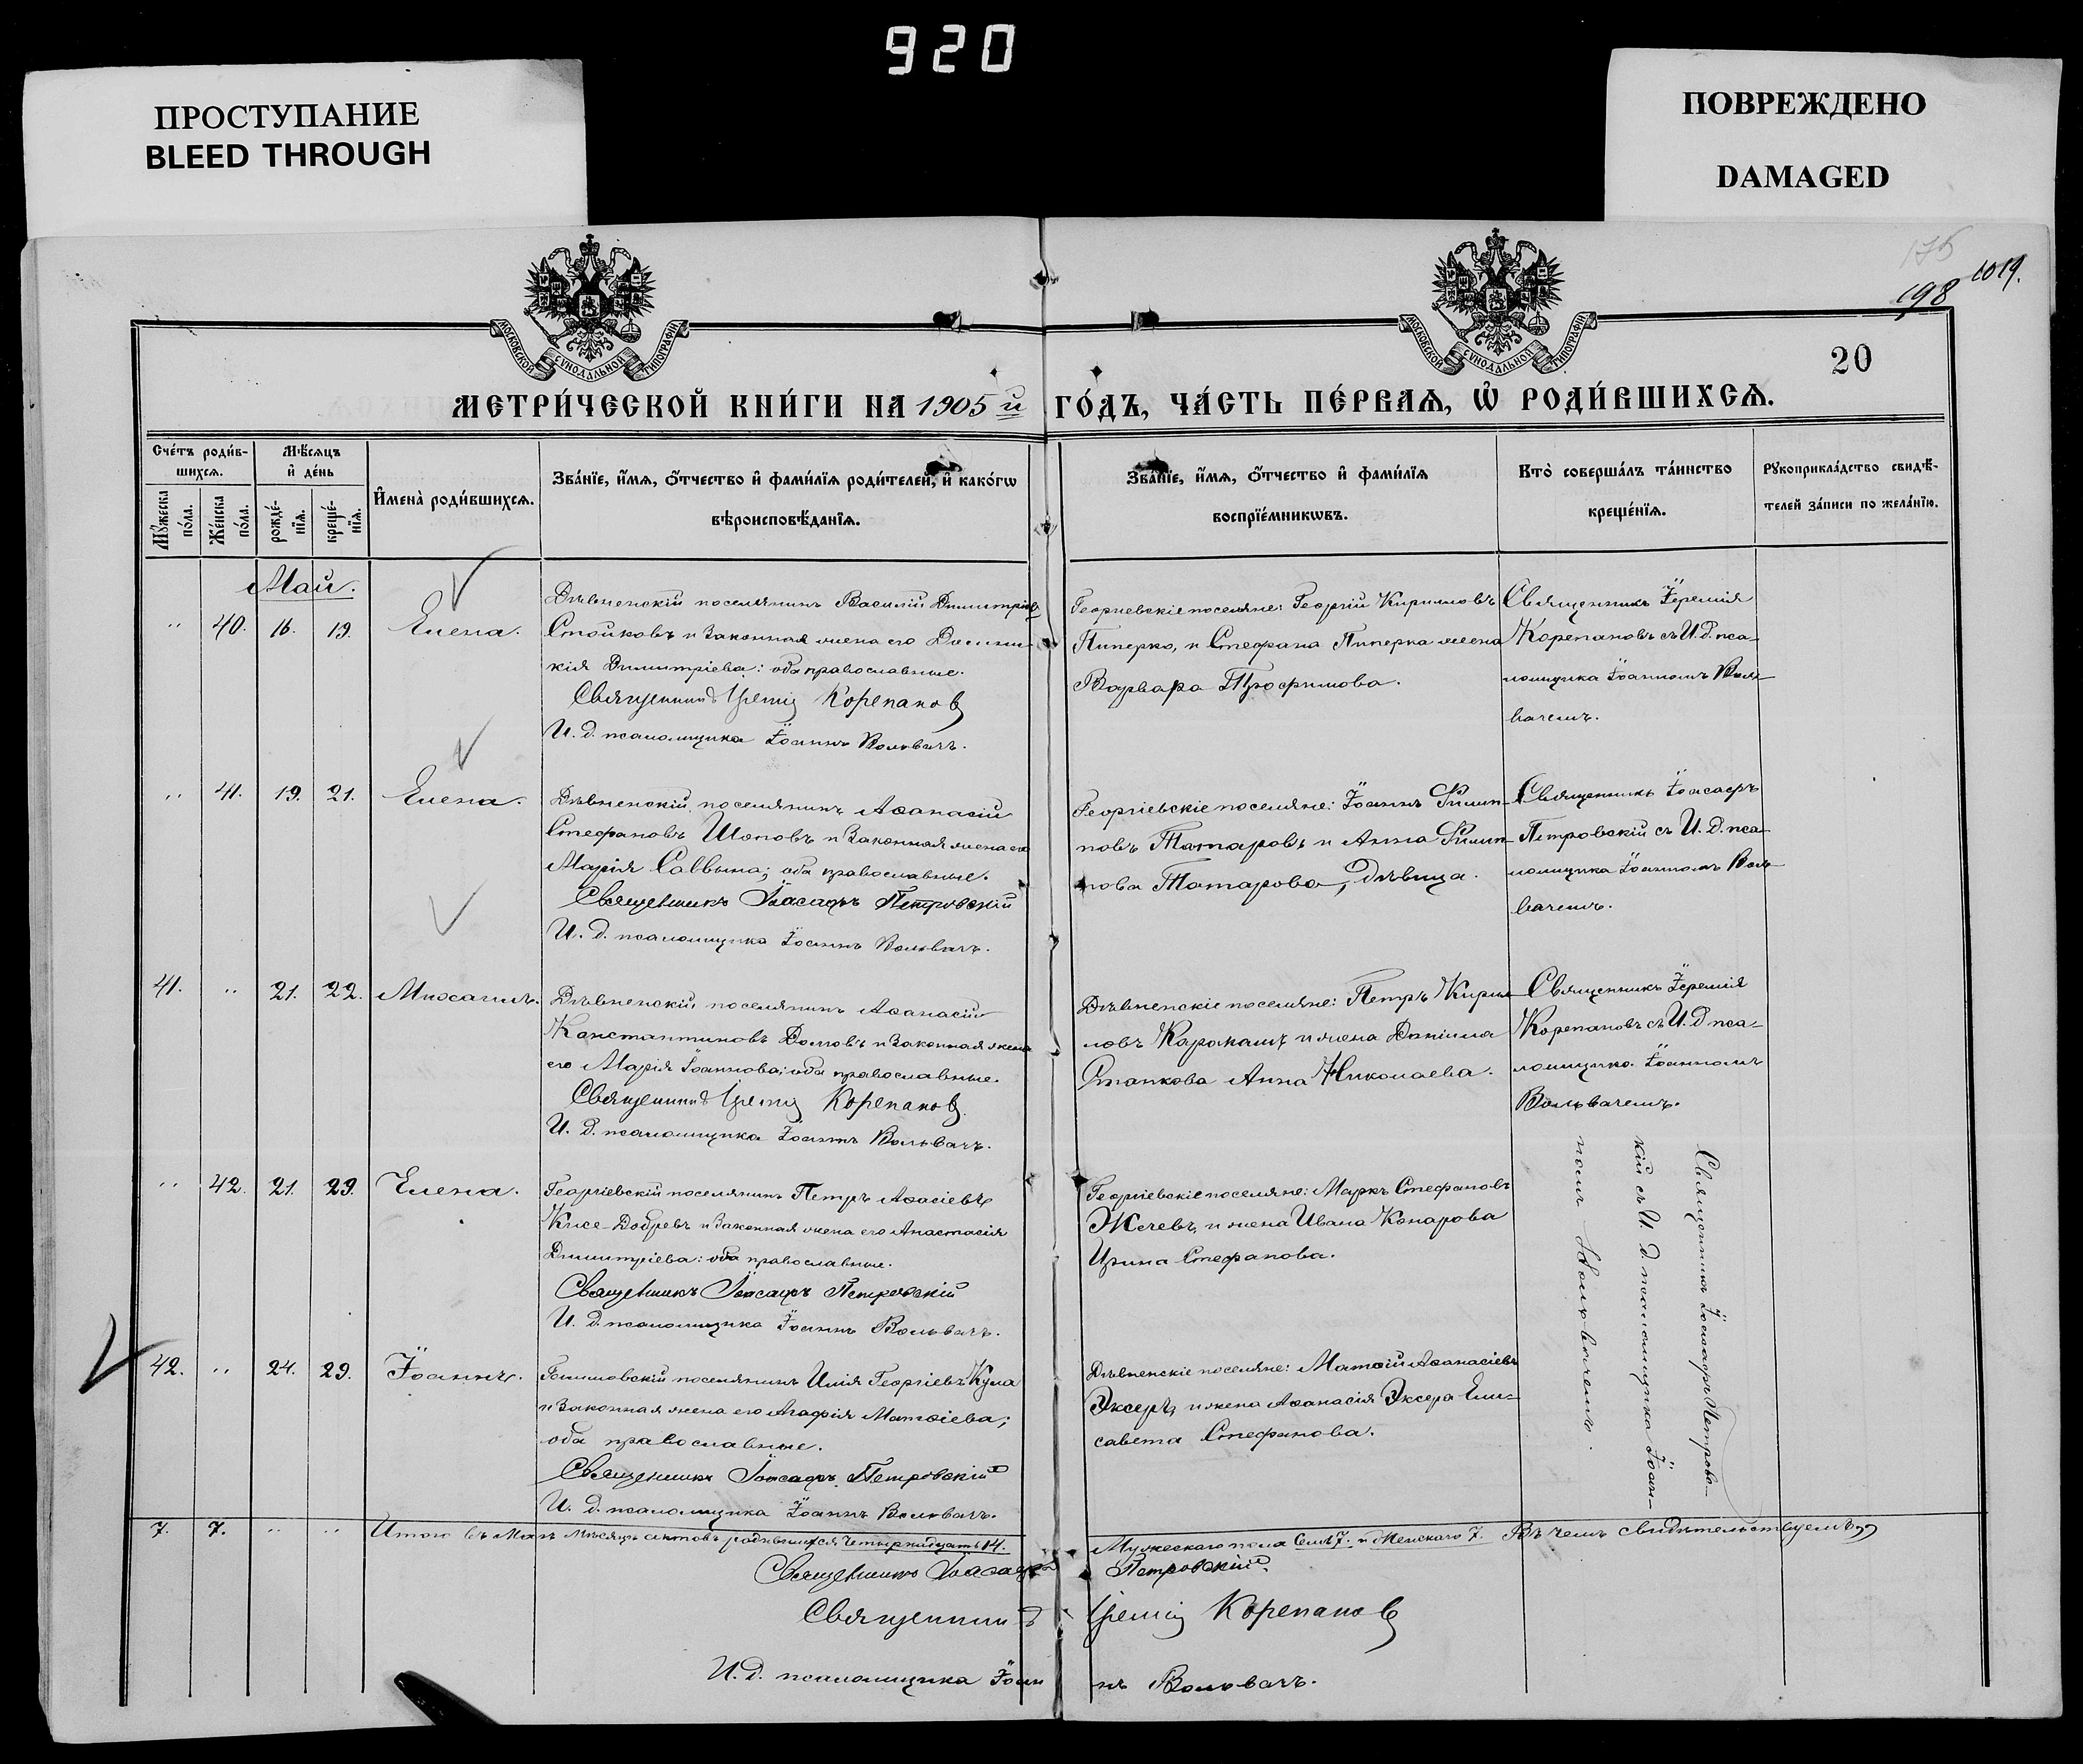 920
ПРОСТУПАНИЕ
BLEED THROUGH
ПОВРЕЖДЕНО
DAMAGED
175
198 1019.
МОСКОВСКОЙ СѴНОДАЛЬНОЙ ТИПОГРАФІИ
МОСКОВСКОЙ СѴНОДАЛЬНОЙ ТИПОГРАФІИ
20
МЕТРИ́ЧЕСКОЙ КНИ́ГИ НА 1905 й ГО́ДЪ, ЧА́СТЬ ПЕ́РВАѦ, Ѡ҆ РОДИ́ВШИХСѦ.
Сче́тъ роди́в-
шихсѧ.
Мѣ́сѧцъ
и҆ де́нь
Мꙋ́жеска по́ла.
Же́нска по́ла.
рожде́-
нїѧ.
креще́-
нїѧ.
И҆мена̀ роди́вшихсѧ.
Зва́нїе, и҆́мѧ, ѻ҆́тчество и҆ фами́лїѧ роди́телей, и҆ како́гѡ
вѣроисповѣ́данїѧ.
Зва́нїе, и҆́мѧ, ѻ҆́тчество и҆ фами́лїѧ
воспрїе́мникѡвъ.
Кто̀ соверша́лъ та́инство
креще́нїѧ.
Рꙋкоприкла́дство свидѣ́-
телей за́писи по жела́нїю.
Май.
" 40. 16. 19. Елена.
Дѣвненскій поселянинъ Василій Димитріевъ
Стойковъ и законная жена его
кія Димитріева: оба православные.
Священникъ Іеремія Корепановъ
И. д. псаломщика Іоаннъ Вольвачъ.
Георгіевскіе поселяне: Георгій Кирилловъ
Пиперко, и Стефана Пиперка жена
Варвара Трофимова.
Священникъ Іеремія
Корепановъ съ И. д. пса-
ломщика Іоанномъ Воль-
вачемъ.
" 41. 19. 21. Елена.
Дѣвненскій поселянинъ Аѳанасій
Стефановъ Шоповъ и законная жена его
Марія Саввына; оба православные.
Священникъ Іоасафъ Петровскій
И. д. псаломщика Іоаннъ Вольвачъ.
Георгіевскіе поселяне: Іоаннъ Филип-
повъ Татаровъ и Анна Филип-
пова Татарова, дѣвица.
Священникъ Іоасафъ
Петровскій съ И. д. пса-
ломщика Іоанномъ Воль-
вачемъ.
41. " 21. 22. Михаилъ.
Дѣвненскій поселянинъ Аѳанасій
Константиновъ Домовъ и законная жена
его Марія Іоаннова; оба православные.
Священникъ Іеремія Корепановъ
И. д. псаломщика Іоаннъ Вольвачъ.
Дѣвненскіе поселяне: Петръ Кирил-
ловъ Каракашъ и жена Даніила
Станкова Анна Николаева.
Священникъ Іеремія
Корепановъ съ И. д. пса-
ломщика Іоанномъ
Вольвачемъ.
" 42. 21. 29. Елена.
Георгіевскій поселянинъ Петръ
Кисе-Добревъ и законная жена его Анастасія
Димитріева: оба православные.
Священникъ Іоасафъ Петровскій
И. д. псаломщика Іоаннъ Вольвачъ.
Георгіевскіе поселяне: Маркъ Стефановъ
Жечевъ, и жена Ивана Конарова
Ирина Стефанова.
Священникъ Іоасафъ Петровс-
кій съ И. д. псаломщика Іоан-
номъ Вольвачемъ.
42. " 24. 29. Іоаннъ.
поселянинъ Илія Георгіевъ Кула
и законная жена его Агафія Матѳіева;
оба православные.
Священникъ Іоасафъ Петровскій
И. д. псаломщика Іоаннъ Вольвачъ.
Дѣвненскіе поселяне: Матѳій Аѳанасіевъ
Эксеръ, и жена Аѳанасія Эксера Ели-
савета Стефанова.
7. 7. " " Итого въ Маѣ мѣсяцѣ актовъ родившихся Четырнадцать 14. Мужескаго пола Семь 7. и Женскаго 7. Въ чемъ свидѣтельствуемъ,
Священникъ Іоасафъ Петровскій.
Священникъ Іеремія Корепановъ
И. д. псаломщика Іоаннъ Вольвачъ.